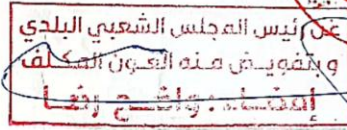 عن رئيس المجلس الشعبي البلدي
و بتفويض منه العون المكلف
إمضاء: واضح رضا